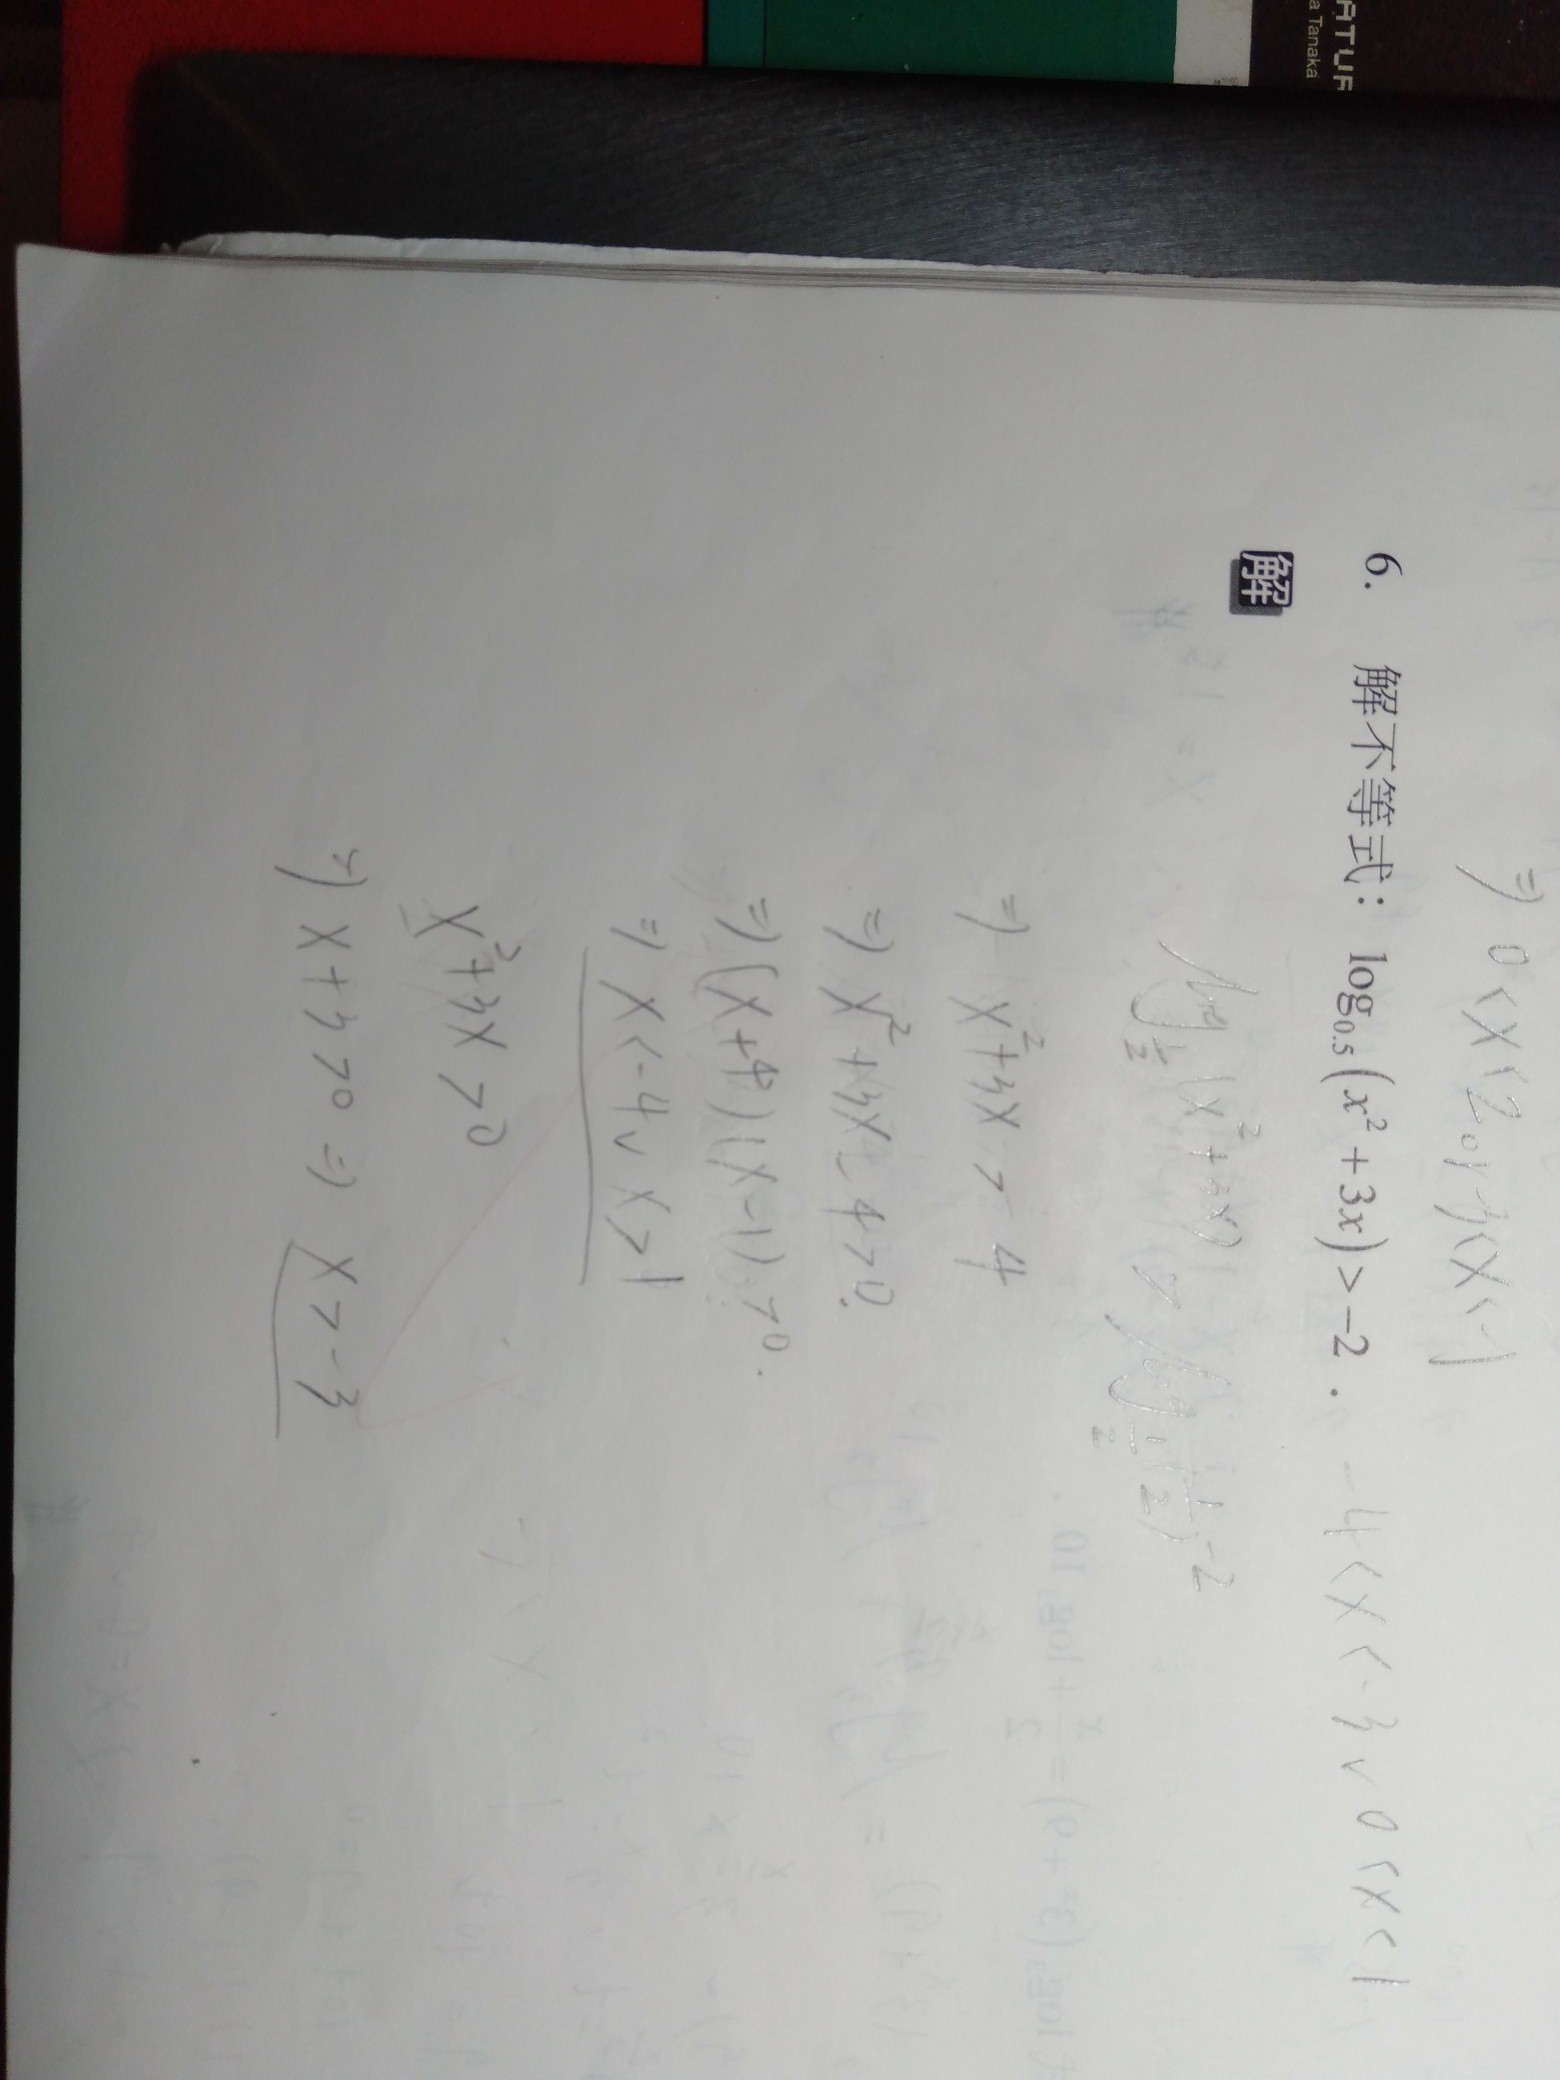 ATUR
a Tanaka
⇒ 0<x<2 or -3<x<-1
6. 解不等式：log₀.₅(x²+3x)>-2. -4<x<-3 ∨ 0<x<1
解
log½(x²+3x) > log½(½)⁻²
⇒ x²+3x > 4
⇒ x²+3x-4>0.
⇒ (x+4)(x-1)>0.
⇒ x<-4 ∨ x>1
x²+3x>0
⇒ x+3>0 ⇒ x>-3